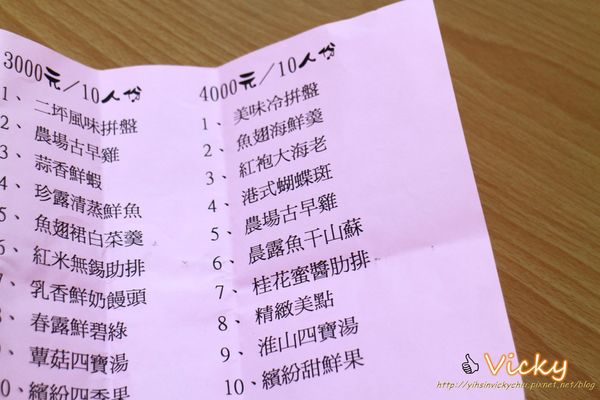 3000元/10人份
1、二坪風味拼盤
2、農場古早雞
3、蒜香鮮蝦
4、珍露清蒸鮮魚
5、魚翅裙白菜羹
6、紅米無錫肋排
7、乳香鮮奶饅頭
8、春露鮮碧綠
9、蕈菇四寶湯
10、繽紛四季果
4000元/10人份
1、美味冷拼盤
2、魚翅海鮮羹
3、紅袍大海老
4、港式蝴蝶斑
5、農場古早雞
6、晨露魚干山蘇
7、桂花蜜醬肋排
8、精緻美點
9、淮山四寶湯
10、繽紛甜鮮果
Vicky
http://yihsinvickychiu.pixnet.net/blog